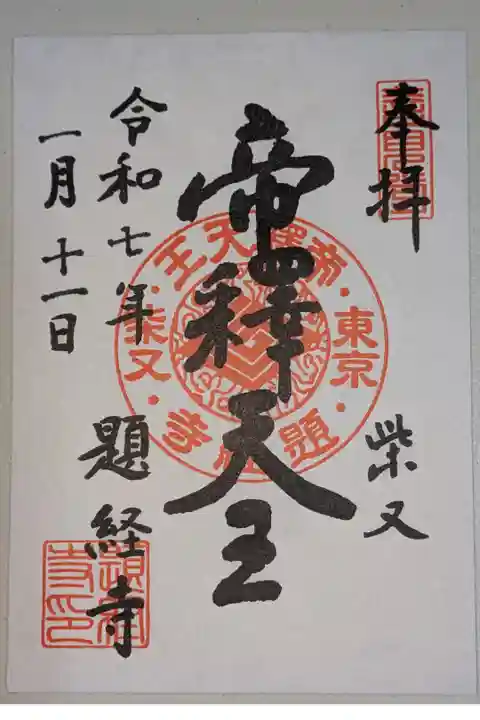 奉拝
柴又
帝釋天王
令和七年
一月十一日
題経寺
帝釋天王
東京
題経寺
柴又